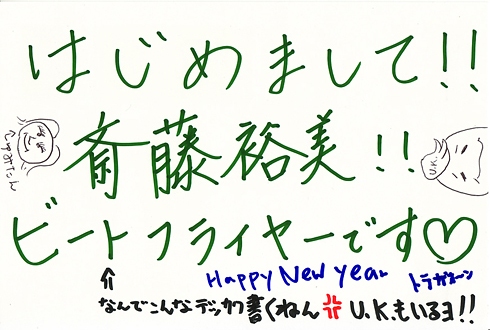 はじめまして!!
斎藤裕美!!
U.K.
ビートフライヤーです♡
Happy New Year
トラガオーン
↑
なんでこんなデッカク書くねん💢 U.K.もいるヨ!!